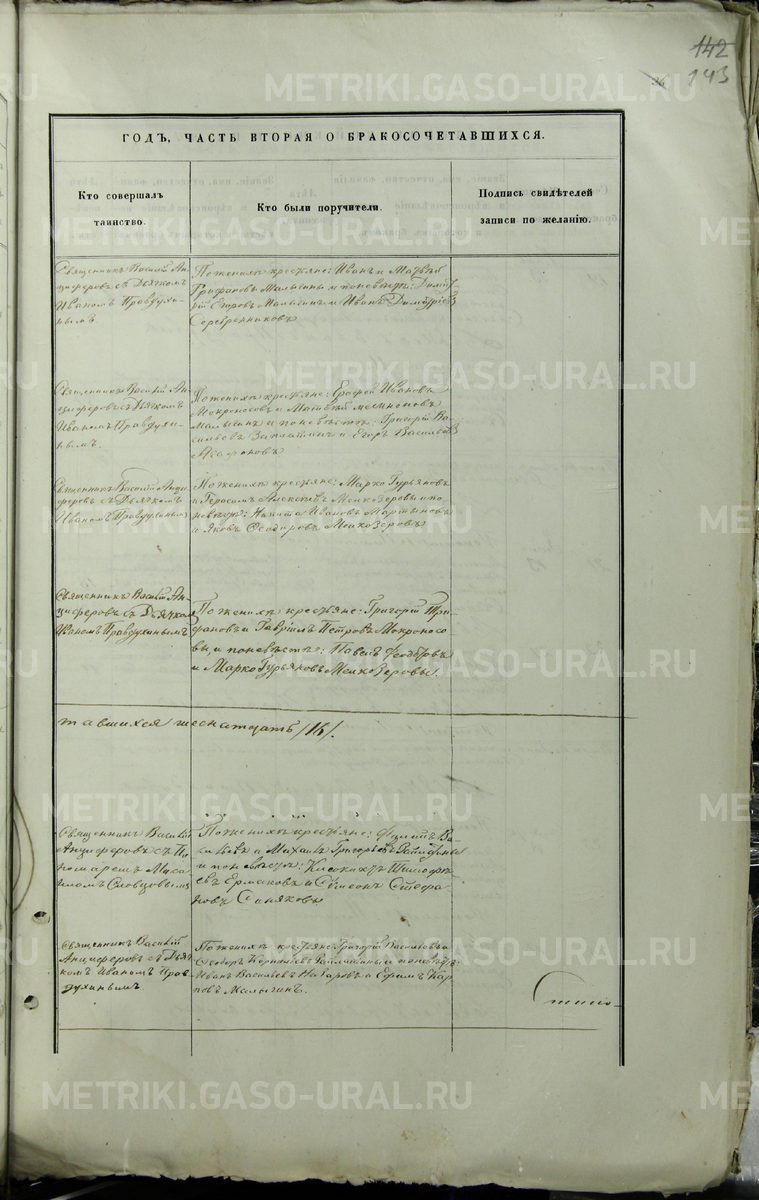 142
143
ГОДЪ, ЧАСТЬ ВТОРАЯ О БРАКОСОЧЕТАВШИХСЯ.
Кто совершалъ
таинство.
Кто были поручители.
Подпись свидѣтелей
записи по желанію.
Священникъ Василій Ан-
циферовъ съ Дьячкомъ
Иваномъ Правдухи-
нымъ
По женихѣ крестьяне: Иванъ и Матвѣй
Трифановы Малыгины и по невѣстѣ: Дими-
трій Егоровъ Малыгинъ и Иванъ Димитріевъ
Серебренниковъ
Священникъ Василій Ан-
циферовъ съ Дьячкомъ
Иваномъ Правдухи-
нымъ.
По женихѣ крестьяне: Ерофей Ивановъ
Мокроносовъ и Матвѣй
Малыгинъ и по невѣстѣ: Григорій Ва-
сильевъ и Егоръ Васильевъ
Агафоновъ
Священникъ Василій Анци-
феровъ съ Дьячкомъ
Иваномъ Правдухинымъ
По женихѣ крестьяне: Марко Гурьяновъ
и Герасимъ Алексѣевъ Мелкозеровы и по
невѣстѣ: Никита Ивановъ Мартыновъ
и Яковъ Ѳеодоровъ Мелкозеровъ
Священникъ Василій Ан-
циферовъ съ Дьячкомъ
Иваномъ Правдухинымъ
По женихѣ крестьяне: Григорій Три-
фановъ и Гавріилъ Петровъ Мокроносо-
вы, и по невѣстѣ: Павелъ Ѳеодоровъ
и Марко Гурьяновъ Мелкозеровы.
тавшихся шеснатцать /16/.
Священникъ Василій
Анциферовъ съ По-
номаремъ Миха
иломъ Словцовымъ
По женихѣ крестьяне: Филипъ Ва-
сильевъ и Михаилъ Григорьевъ
и по невѣстѣ:
евъ Ермаковъ и Симеонъ Стефа
новъ Синяковы
Священникъ Василій
Анциферовъ съ Дьяч-
комъ Иваномъ Прав-
духинымъ.
По женихѣ крестьяне: Григорій Васильевъ и
Ѳеодоръ и по невѣстѣ:
Иванъ Васильевъ Назаровъ и Ефимъ Кар-
повъ Малыгинъ.
METRIKI.GASO-URAL.RU